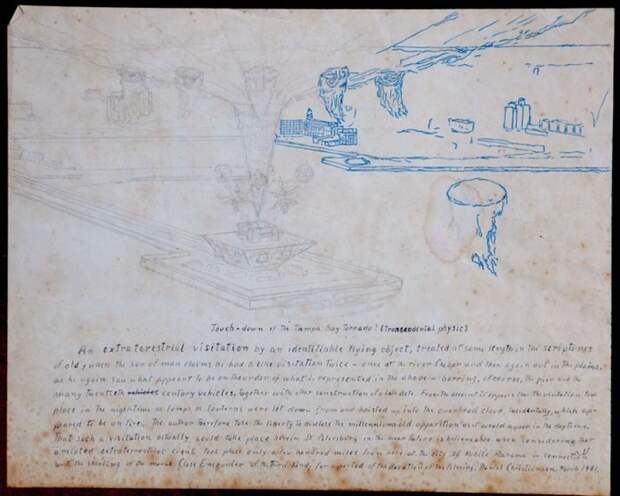 Touch-down of the Tampa Bay Tornado! (Transcendental physic)
An extraterestrial visitation by an identifiable flying object, treated at some length in the scriptures
of old, when the son of man claims he had a like visitation twice - once at the river Cheper and then again out in the plains,
as he again saw what appears to be on the order of what is represented in the above - barring, of course, the pier and the
many twentieth century vehicles, together with other construction of a late date. From the account it appears that the visitation took
place in the nighttime as lamps or lanterns were let down from and hoisted up into the overhead cloud, incidentally, which ap-
peared to be on fire. The author therefore take the liberty to disclose the millenniums old apparition as it would appear in the daytime.
That such a visitation actually could take place herein St. Petersburg in the near future is believable when considering that
an extraterestrial sight took place only a few hundred miles from here at the City of Mobile Alabama in connection
with the shooting of the movie Close Encounter of the Third Kind, for a period of the duration of the filming. David Christiansen, March 1981.